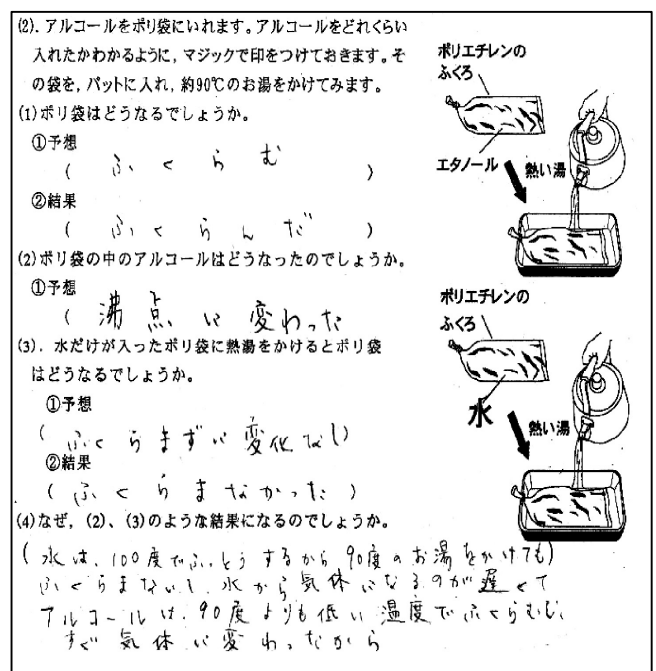 (2). アルコールをポリ袋にいれます。アルコールをどれくらい
入れたかわかるように, マジックで印をつけておきます。そ
の袋を, パットに入れ, 約90℃のお湯をかけてみます。
(1)ポリ袋はどうなるでしょうか。
①予想
( ふくらむ )
②結果
( ふくらんだ )
(2)ポリ袋の中のアルコールはどうなったのでしょうか。
①予想
( 沸点に変わった
(3). 水だけが入ったポリ袋に熱湯をかけるとポリ袋
はどうなるでしょうか。
①予想
( ふくらまずに変化なし)
②結果
( ふくらまなかった )
(4)なぜ, (2)、(3)のような結果になるのでしょうか。
( 水は、100度でふっとうするから 90度のお湯をかけても)
ふくらまないし、水から気体になるのが遅くて
アルコールは、90度よりも低い温度でふくらむし、
すぐ気体に変わったから
ポリエチレンの
ふくろ
エタノール
熱い湯
ポリエチレンの
ふくろ
水
熱い湯